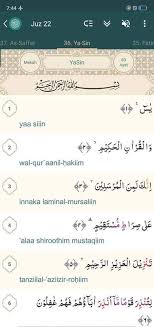 7:44
Juz 22
37. As-Saffat 36. Ya-Sin 35. Fatir
Mekah YaSin 83 ayat
بِسْمِ اللَّهِ الرَّحْمَٰنِ الرَّحِيمِ
1 يٰسۤ ﴿١﴾
yaa siiin
2 وَالْقُرْاٰنِ الْحَكِيْمِ ﴿٢﴾
wal-qur'aanil-ḥakiim
3 اِنَّكَ لَمِنَ الْمُرْسَلِيْنَ ﴿٣﴾
innaka laminal-mursaliin
4 عَلٰى صِرَاطٍ مُّسْتَقِيْمٍ ﴿٤﴾
'alaa shiroothim mustaqiim
5 تَنْزِيْلَ الْعَزِيْزِ الرَّحِيْمِ ﴿٥﴾
tanziilal-'aziizir-roḥiim
6 لِتُنْذِرَ قَوْمًا مَّآ اُنْذِرَ اٰبَاۤؤُهُمْ فَهُمْ غٰفِلُوْنَ